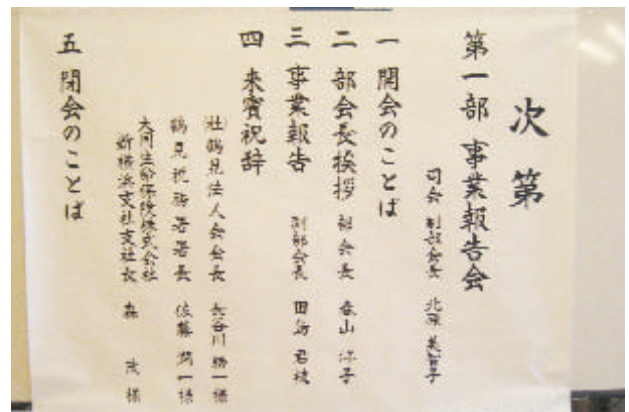 次第
第一部 事業報告会
司会 副部会長 北原 美智子
一 開会のことば
二 部会長挨拶 部会長 春山 洋子
三 事業報告 副部会長 田島 君枝
四 来賓祝辞
㈳鶴見法人会会長 長谷川 勝一 様
鶴見税務署署長 佐藤 潤一 様
大同生命保険株式会社
新横浜支社支社長 森 茂 様
五 閉会のことば